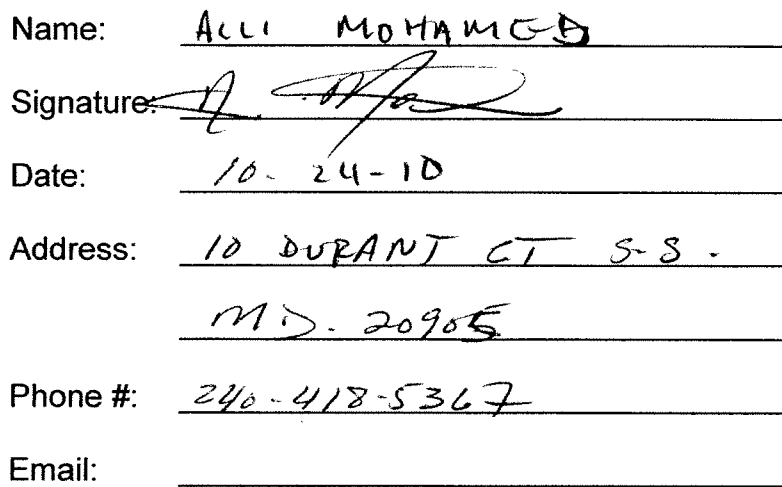 Name: ALLI MOHAMED
Signature:
Date: 10-24-10
Address: 10 DURANT CT S.S.
MD. 20905
Phone #: 240-418-5367
Email: